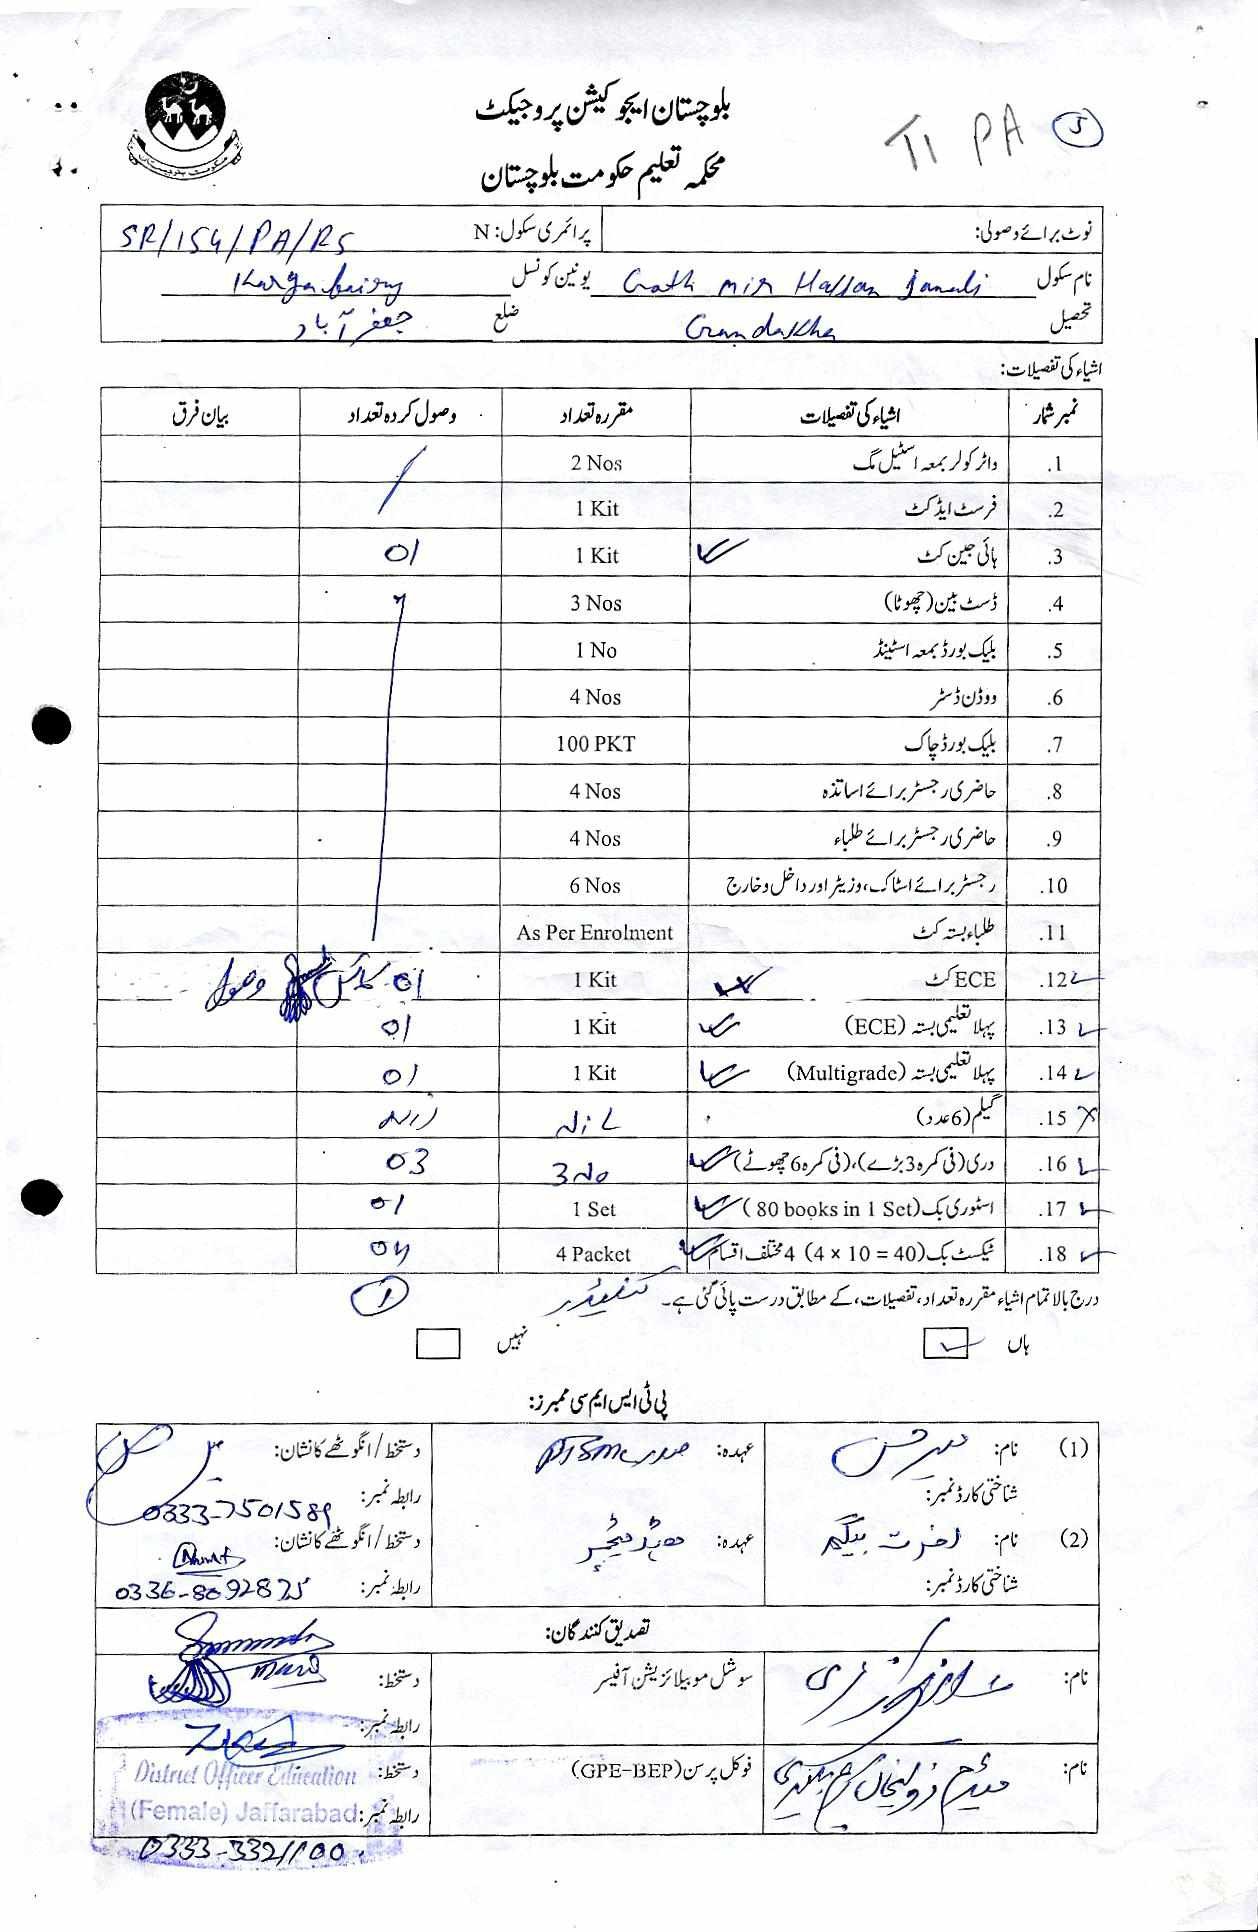 بلوچستان ایجوکیشن پروجیکٹ
TI PA 5
محکمہ تعلیم حکومت بلوچستان
نوٹ برائے وصولی: پرائمری سکول: N SR/154/PA/RS
نام سکول Goth Mir Hassan Jamali یونین کونسل
تحصیل Gandakha ضلع جعفر آباد
اشیاء کی تفصیلات:
نمبر شمار اشیاء کی تفصیلات مقررہ تعداد وصول کردہ تعداد بیان فرق
.1 واٹر کولر بمعہ اسٹیل مگ 2 Nos
.2 فرسٹ ایڈ کٹ 1 Kit
.3 ہائی جین کٹ 1 Kit 01
.4 ڈسٹ بین (چھوٹا) 3 Nos
.5 بلیک بورڈ بمعہ اسٹینڈ 1 No
.6 ووڈن ڈسٹر 4 Nos
.7 بلیک بورڈ چاک 100 PKT
.8 حاضری رجسٹر برائے اساتذہ 4 Nos
.9 حاضری رجسٹر برائے طلباء 4 Nos
.10 رجسٹر برائے اسٹاک، وزیٹر اور داخل و خارج 6 Nos
.11 طلباء بستہ کٹ As Per Enrolment
.12 ECE کٹ 1 Kit 01 وصول
.13 پہلا تعلیمی بستہ (ECE) 1 Kit 01
.14 پہلا تعلیمی بستہ (Multigrade) 1 Kit 01
.15 گیلم (6 عدد) Nil Nil
.16 دری (فی کمرہ 3 بڑے)، (فی کمرہ 6 چھوٹے) 3 No 03
.17 اسٹوری بک (80 books in 1 Set) 1 Set 01
.18 ٹیکسٹ بک (4 × 10 = 40) 4 مختلف اقسام 4 Packet 04
درج بالا تمام اشیاء مقررہ تعداد، تفصیلات، کے مطابق درست پائی گئی ہے۔ 1
ہاں نہیں
پی ٹی ایس ایم سی ممبرز:
(1) نام: عہدہ: PTSMC صدر دستخط / انگوٹھے کا نشان:
شناختی کارڈ نمبر: رابطہ نمبر: 0333-7501589
(2) نام: بیگم عہدہ: ہیڈ ٹیچر دستخط / انگوٹھے کا نشان:
شناختی کارڈ نمبر: رابطہ نمبر: 0336-8092825
تصدیق کنندگان:
نام: سوشل موبیلائزیشن آفیسر دستخط:
رابطہ نمبر:
نام: میڈم فوکل پرسن (GPE-BEP) دستخط:
District Officer Education
(Female) Jaffarabad
رابطہ نمبر: 0333-3321100